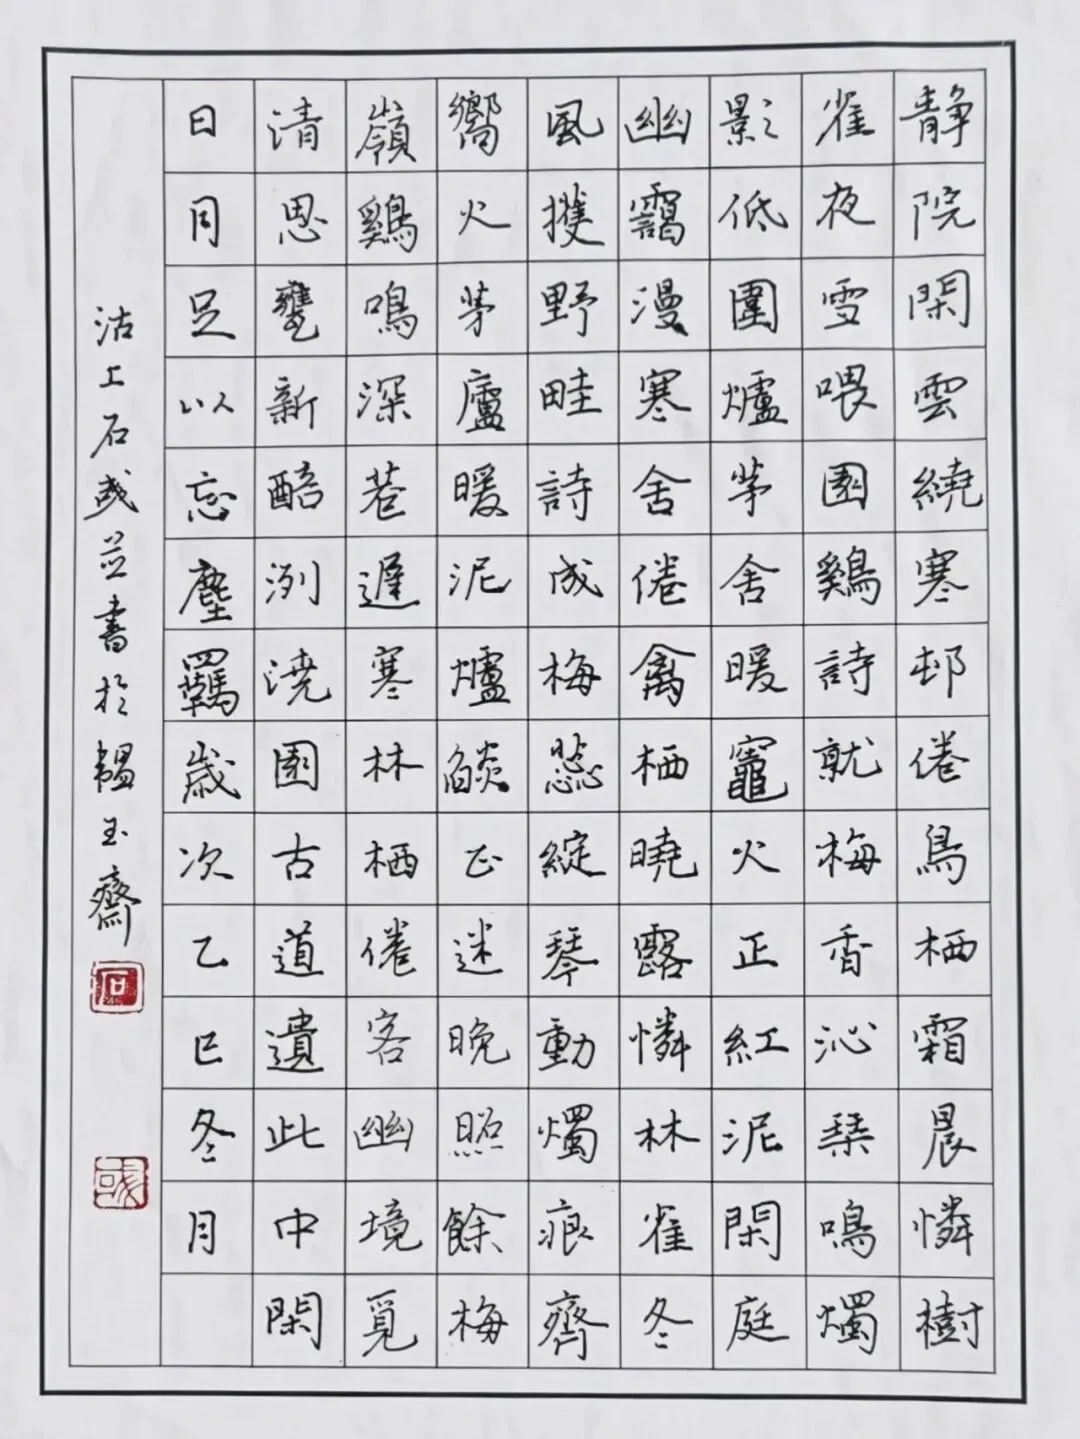 静院閑雲繞寒邨倦鳥栖霜晨憐樹
雀夜雪喂園鷄詩就梅香沁琹鳴燭
影低圍爐茅舍暖竈火正紅泥閑庭
幽靄漫寒舍倦禽栖曉露憐林雀冬
風擭野畦詩成梅蕊綻琴動燭痕齊
嚮火茅廬暖泥爐燄正迷晚照餘梅
嶺鷄鳴深巷遲寒林栖倦客幽境覓
清思甕新醅洌澆園古道遺此中閑
日月足以忘塵羈歲次乙巳冬月
沽上石或並書於韞玉齋
石